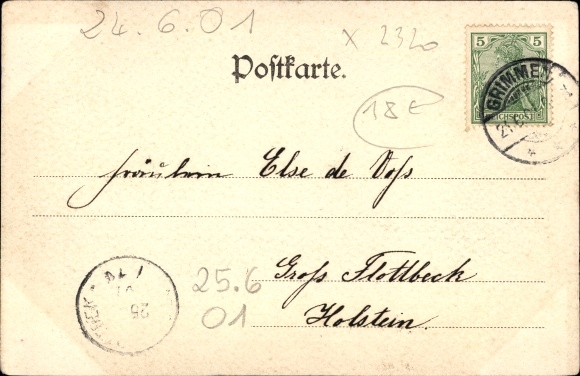 24.6.01
x 2320
Postkarte.
5 5
REICHSPOST
GRIMMEN
18 €
Fräulein Else de Voss
Gross Flottbeck
Holstein.
25.6
01
25